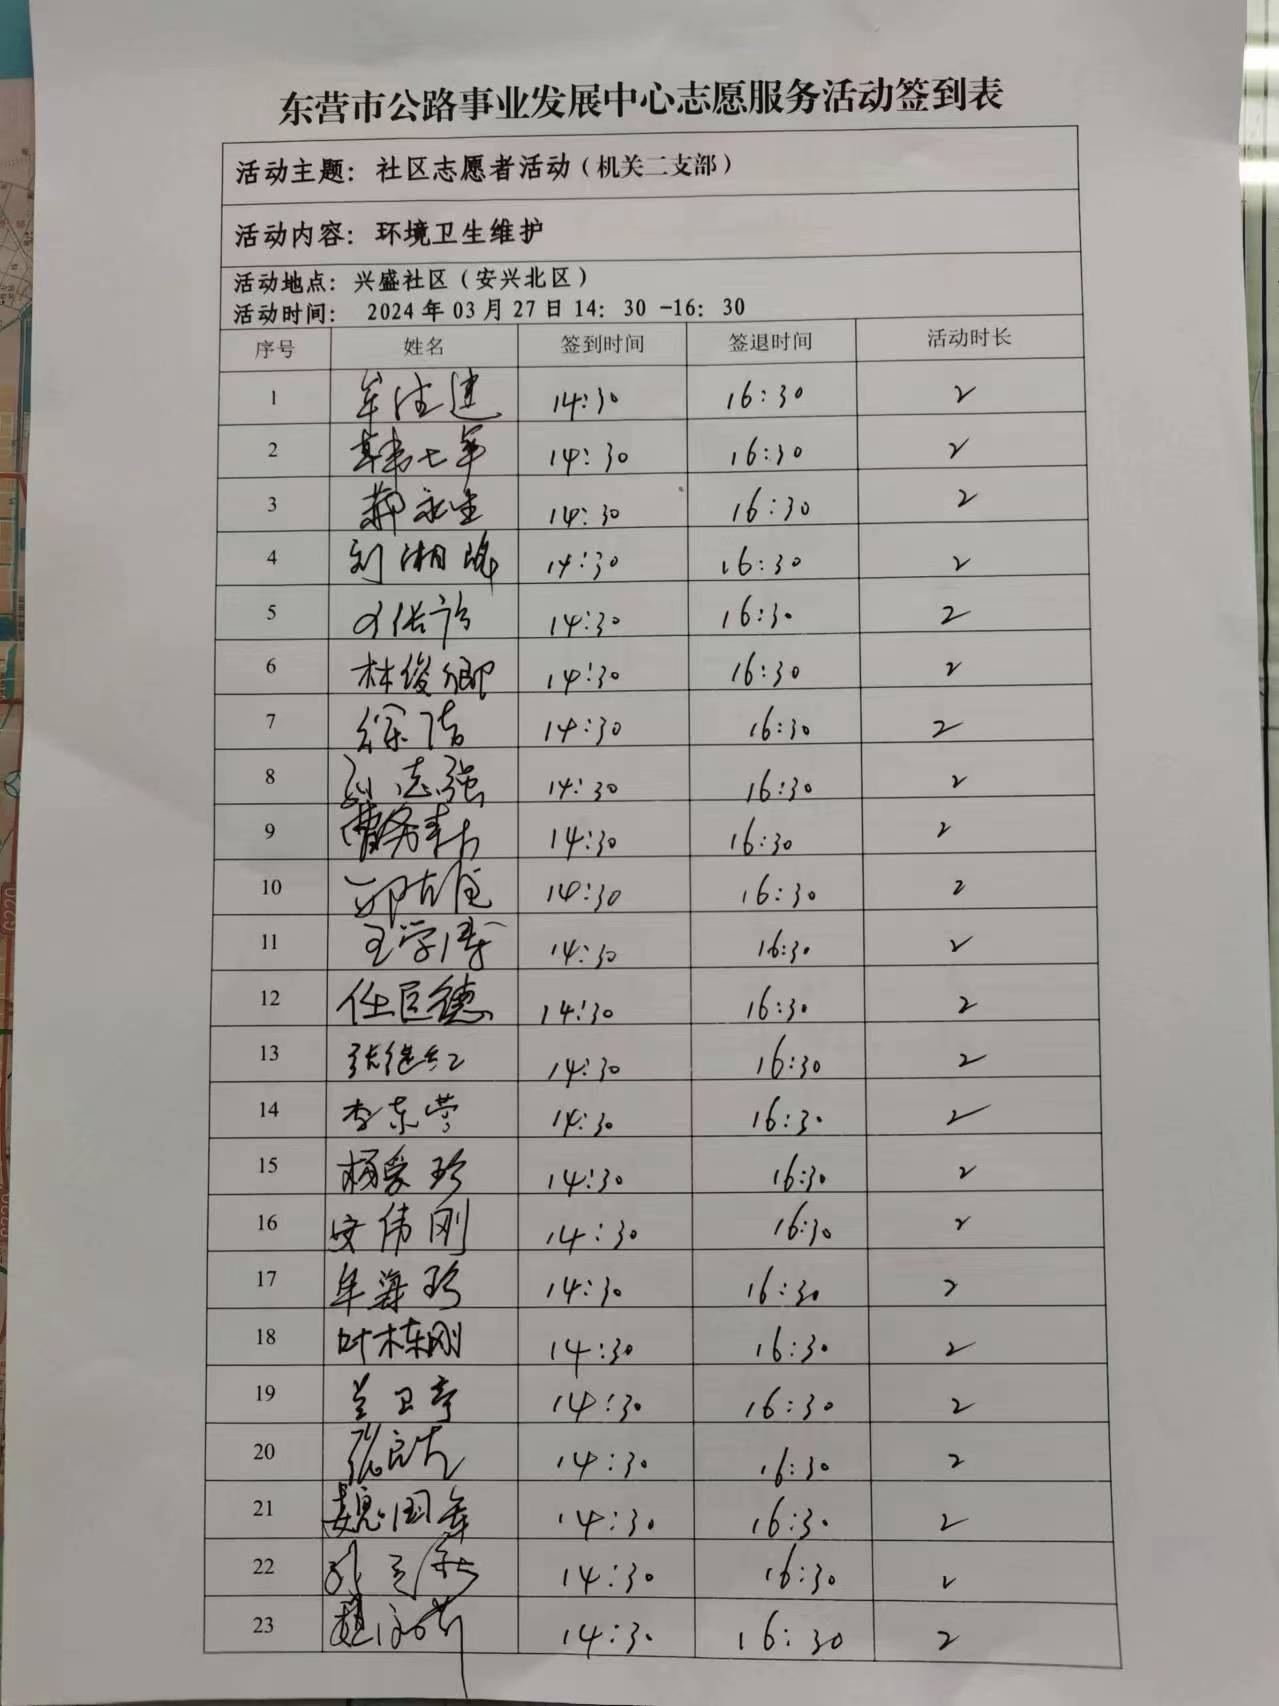 东营市公路事业发展中心志愿服务活动签到表
活动主题：社区志愿者活动（机关二支部）
活动内容：环境卫生维护
活动地点：兴盛社区（安兴北区）
活动时间： 2024年03月27日14：30-16：30
序号 姓名 签到时间 签退时间 活动时长
1 14:30 16:30 2
2 韩七年 14:30 16:30 2
3 14:30 16:30 2
4 刘湘 14:30 16:30 2
5 14:30 16:30 2
6 林俊卿 14:30 16:30 2
7 徐洁 14:30 16:30 2
8 志强 14:30 16:30 2
9 曹务 14:30 16:30 2
10 14:30 16:30 2
11 王学博 14:30 16:30 2
12 任臣德 14:30 16:30 2
13 张继红 14:30 16:30 2
14 李东营 14:30 16:30 2
15 杨爱珍 14:30 16:30 2
16 安伟刚 14:30 16:30 2
17 牟海珍 14:30 16:30 2
18 叶栋刚 14:30 16:30 2
19 兰卫亭 14:30 16:30 2
20 张 14:30 16:30 2
21 魏国 14:30 16:30 2
22 14:30 16:30 2
23 赵 14:30 16:30 2
G220